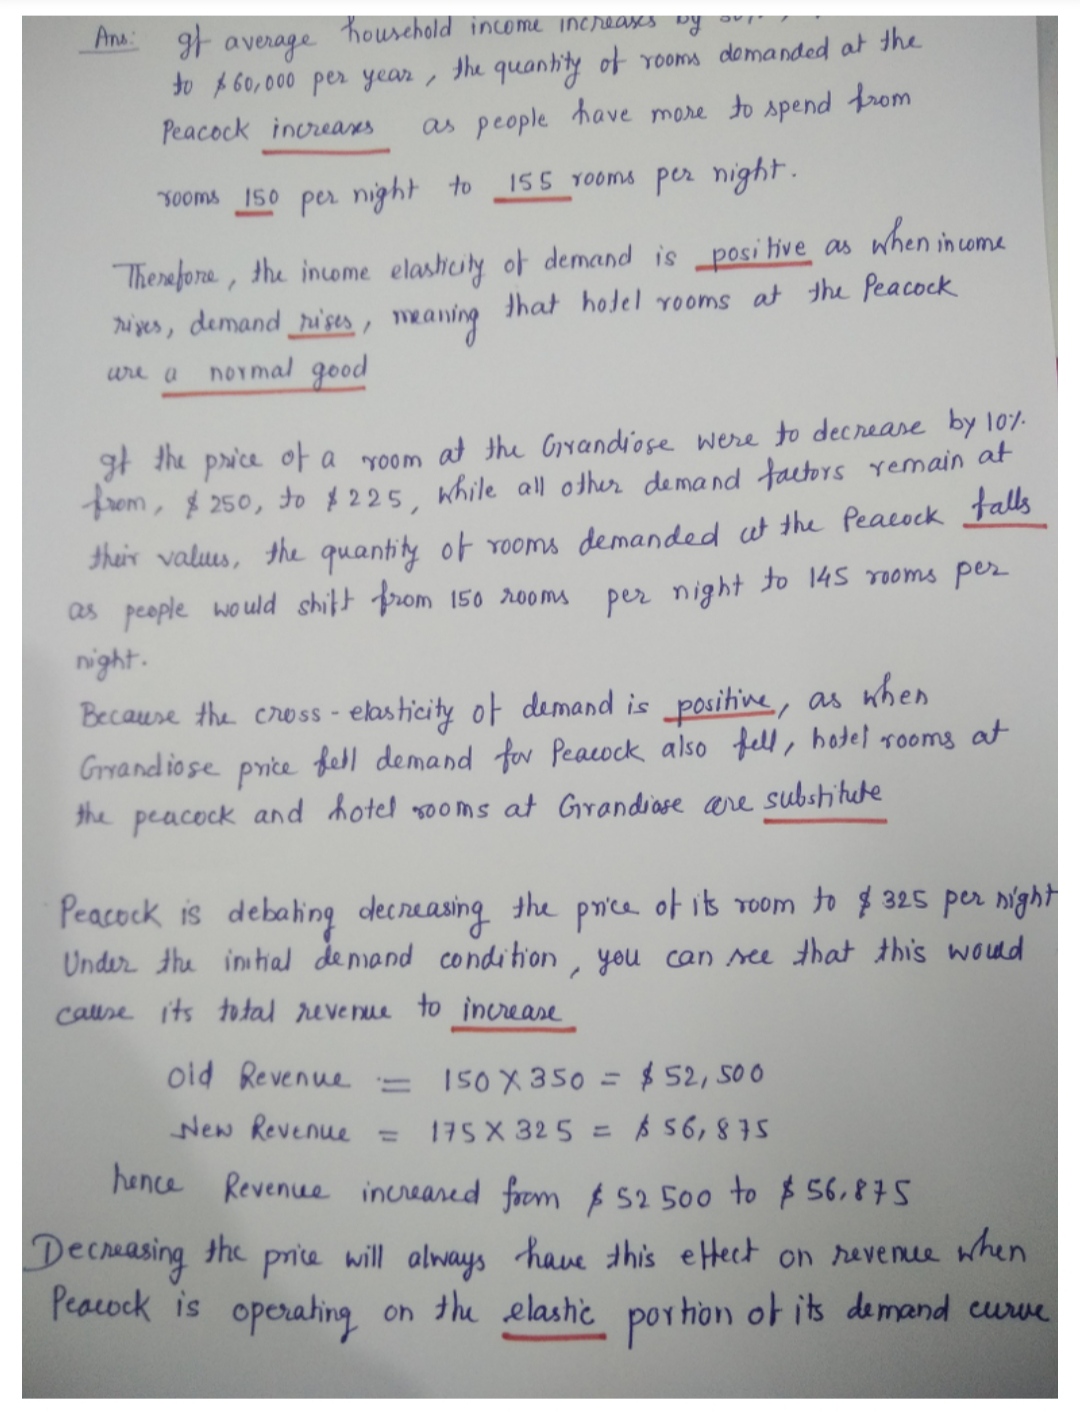 Ans: If average household income increases by
to $60,000 per year, the quantity of rooms demanded at the
Peacock increases as people have more to spend from
rooms 150 per night to 155 rooms per night.
Therefore, the income elasticity of demand is positive as when income
rises, demand rises, meaning that hotel rooms at the Peacock
are a normal good
If the price of a room at the Grandiose were to decrease by 10%
from, $250, to $225, while all other demand factors remain at
their values, the quantity of rooms demanded at the Peacock falls
as people would shift from 150 rooms per night to 145 rooms per
night.
Because the cross-elasticity of demand is positive, as when
Grandiose price fell demand for Peacock also fell, hotel rooms at
the peacock and hotel rooms at Grandiose are substitute
Peacock is debating decreasing the price of its room to $325 per night
Under the initial demand condition, you can see that this would
cause its total revenue to increase
Old Revenue := 150 X 350 = $52,500
New Revenue = 175 X 325 = $56,875
hence Revenue increased from $52500 to $56,875
Decreasing the price will always have this effect on revenue when
Peacock is operating on the elastic portion of its demand curve